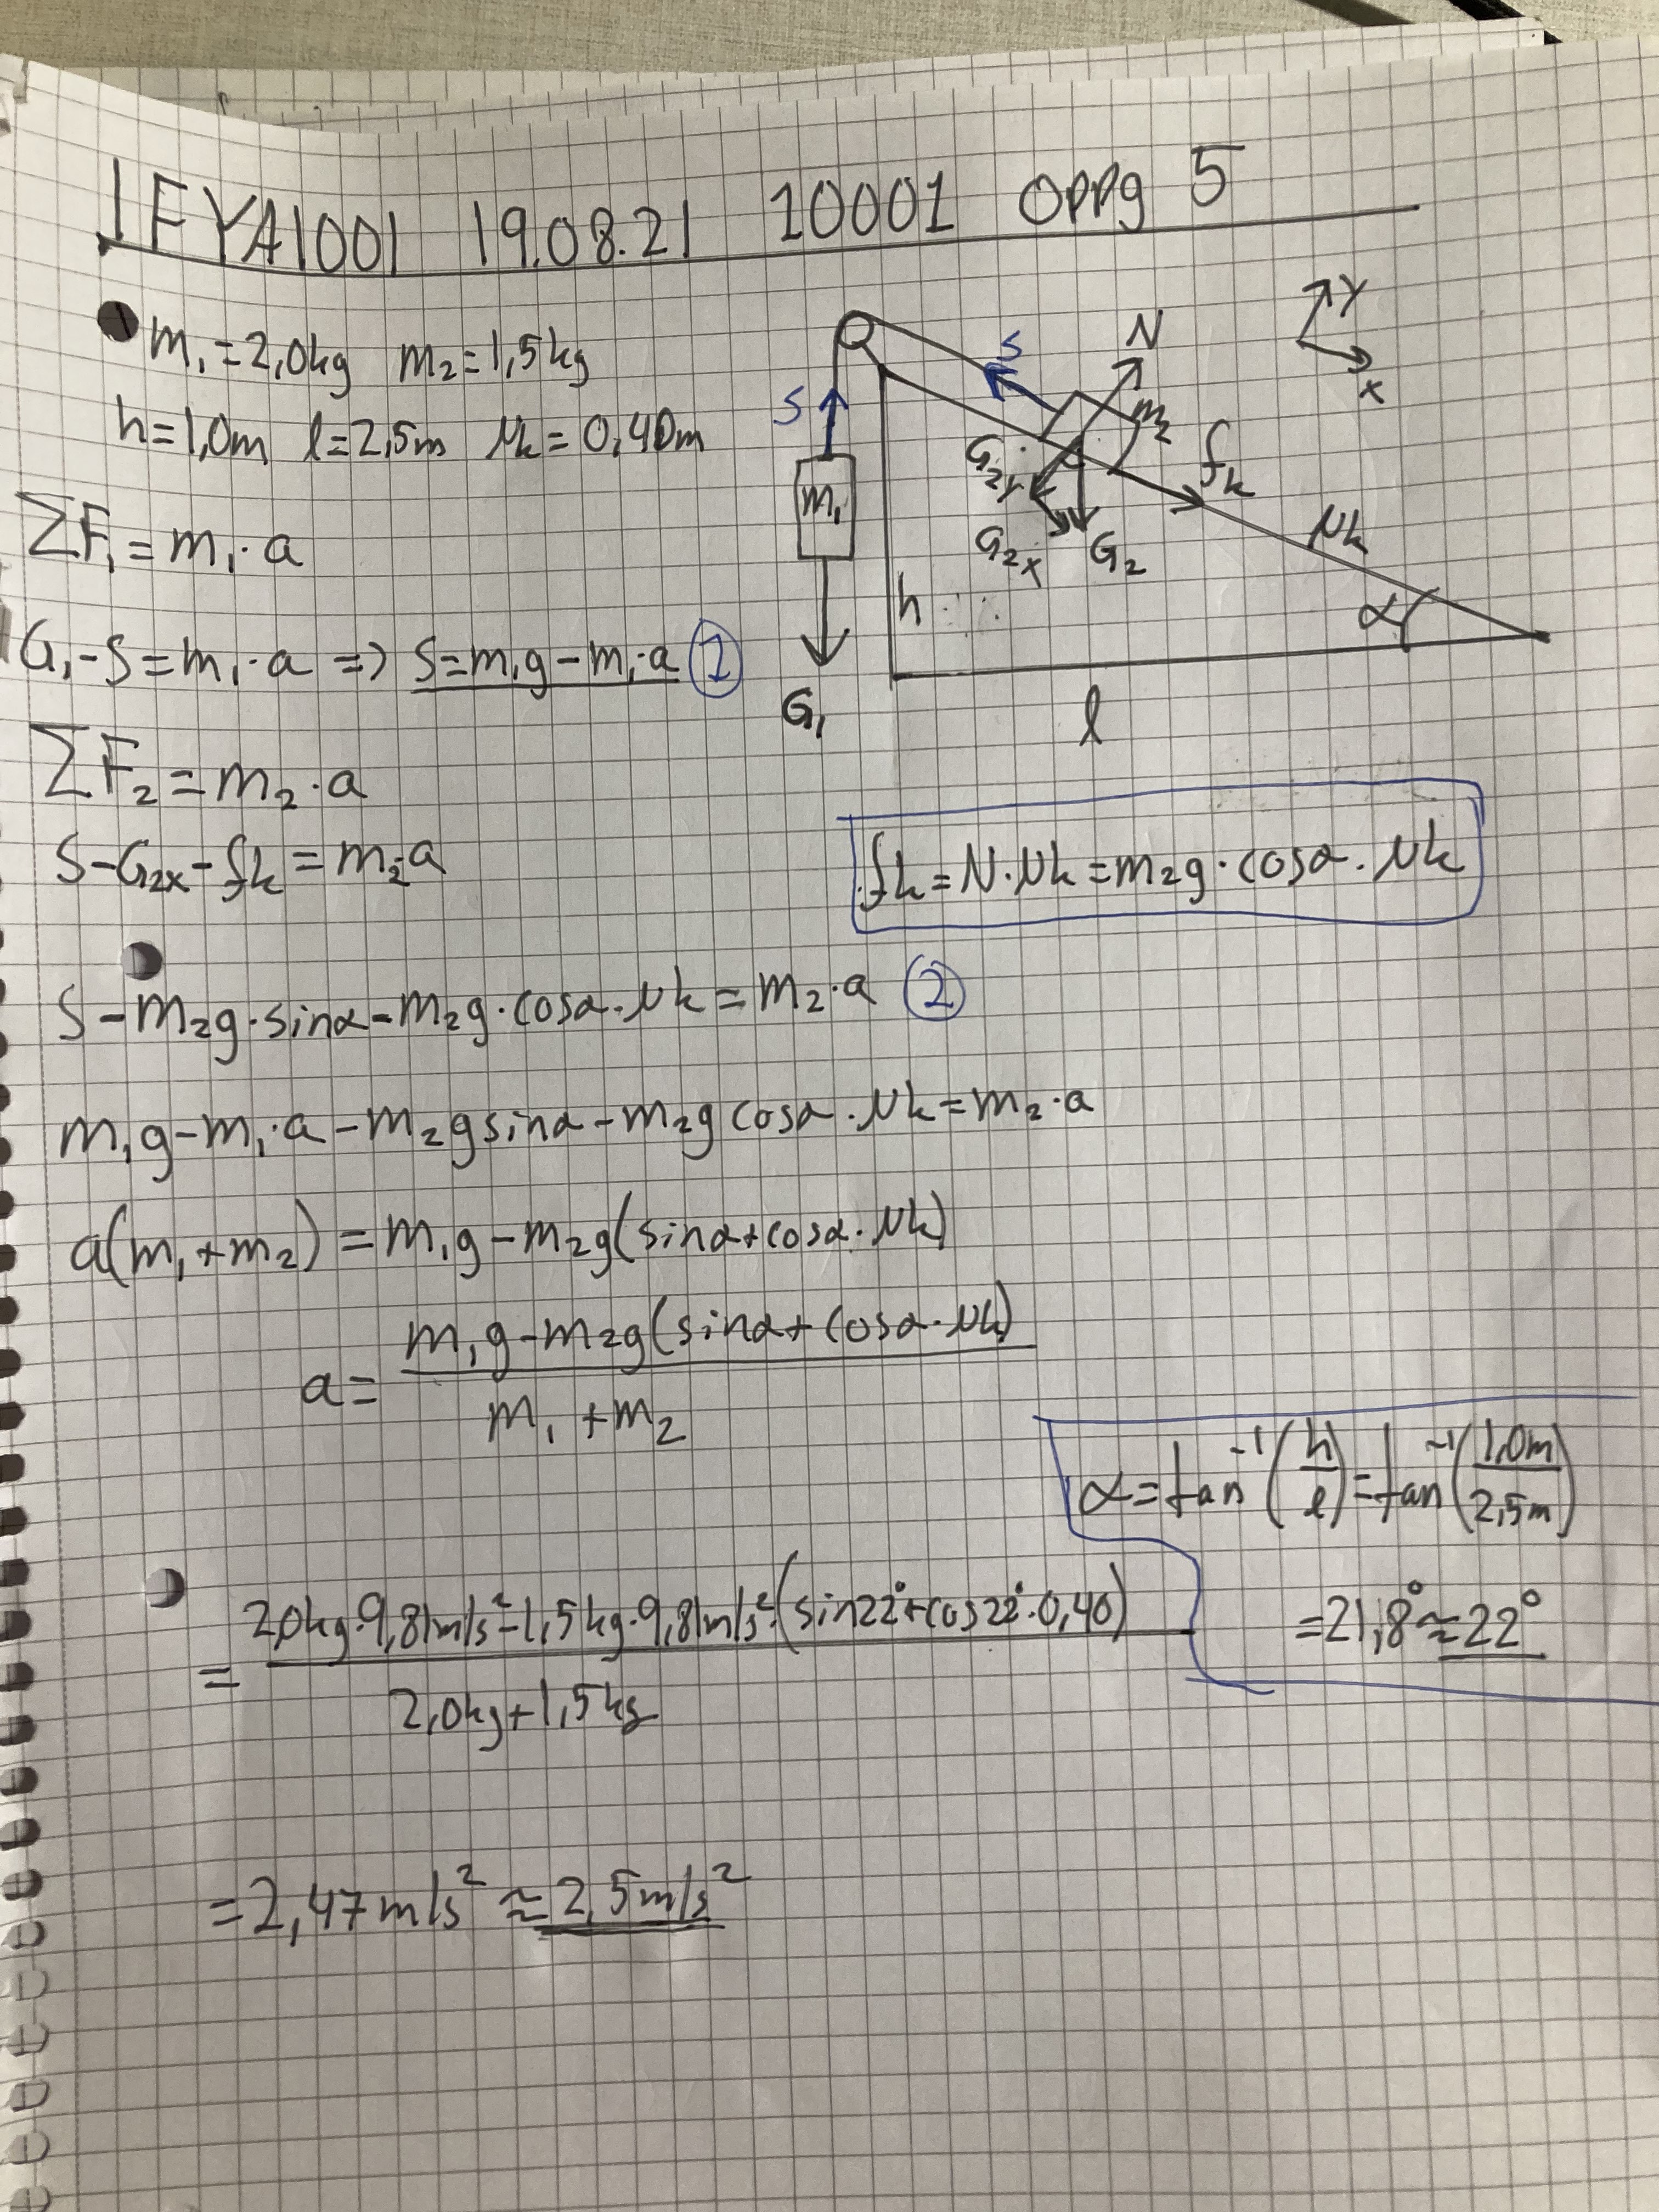 IFYA1001 19.08.21 10001 oppg 5
m₁=2,0kg m₂=1,5kg
h=1,0m l=2,5m μk=0,40m
S
S
N
m₂
y
x
m₁
G₂y
G₂x
G₂
fk
μk
α
h
l
G₁
ΣF₁=m₁·a
G₁-S=m₁·a => S=m₁g-m₁·a ①
ΣF₂=m₂·a
S-G₂x-fk=m₂·a
fk=N·μk=m₂g·cosα·μk
S-m₂g·sinα-m₂g·cosα·μk=m₂·a ②
m₁g-m₁·a-m₂gsinα-m₂gcosα·μk=m₂·a
a(m₁+m₂)=m₁g-m₂g(sinα+cosα·μk)
a= m₁g-m₂g(sinα+cosα·μk)
m₁+m₂
α=tan⁻¹(h/l)=tan⁻¹(1,0m/2,5m)
=21,8°≈22°
= 2,0kg·9,81m/s²-1,5kg·9,81m/s²·(sin22°+cos22°·0,40)
2,0kg+1,5kg
=2,47m/s²≈2,5m/s²